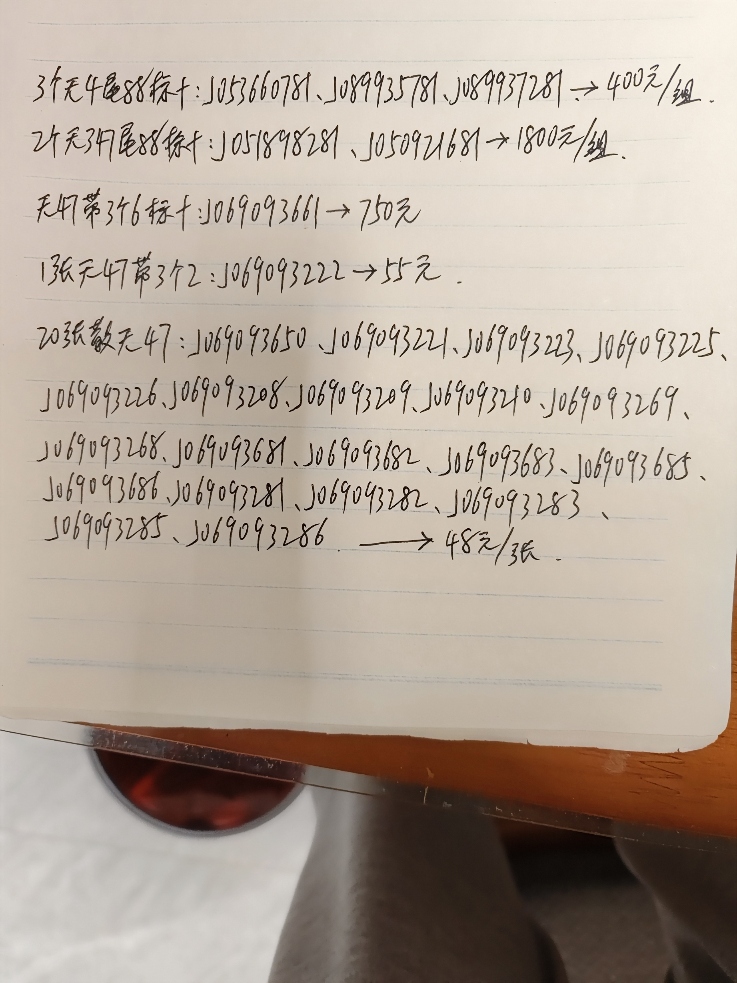 3个无4尾88标十:J053660781、J089935781、J089937281→400元/组.
2个无347尾88标十:J051898281、J050921681→1800元/组.
无47带3个6标十:J069093661→750元
1张无47带3个2:J069093222→55元.
20张散无47:J069093650、J069093221、J069093223、J069093225、
J069093226、J069093208、J069093209、J069093210、J069093269、
J069093268、J069093681、J069093682、J069093683、J069093685、
J069093686、J069093281、J069093282、J069093283、
J069093285、J069093286 → 48元/张.